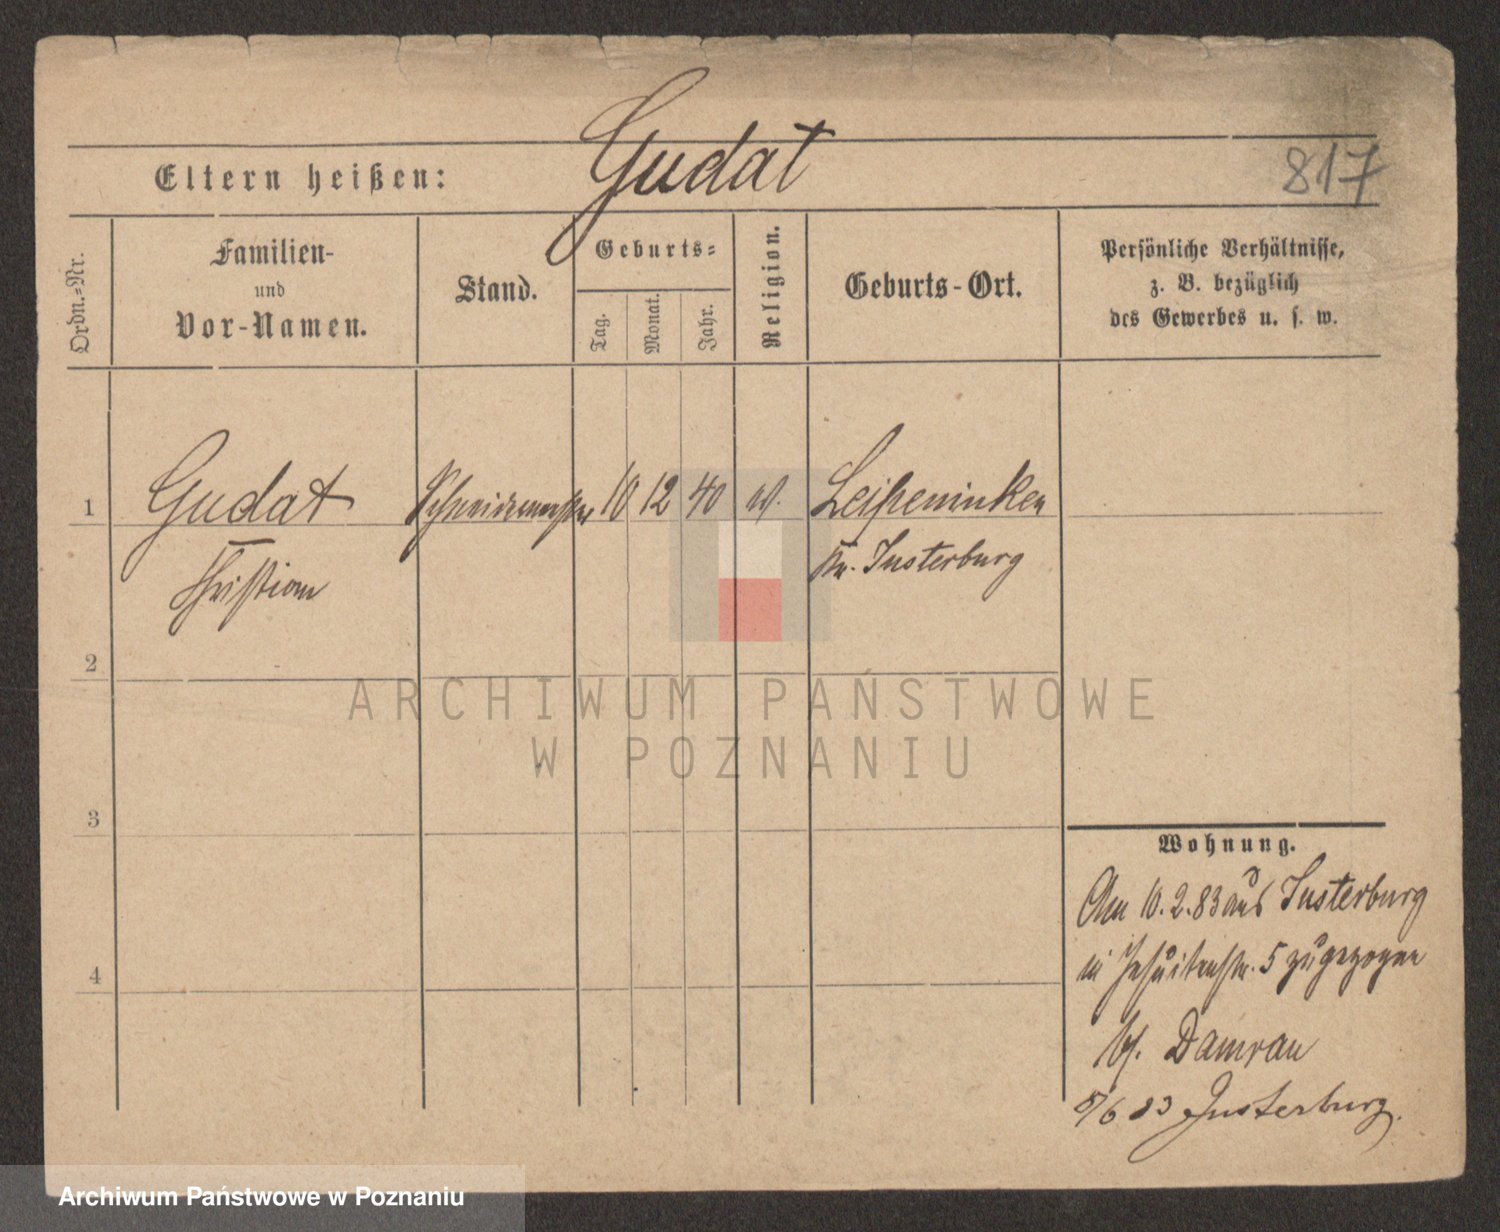 Gudat
Eltern heißen:
817
Ordn.-Nr.
Familien-
und
Vor-Namen.
Stand.
Geburts-
Tag.
Monat.
Jahr.
Religion.
Geburts-Ort.
Persönliche Verhältnisse,
z. B. bezüglich
des Gewerbes u. s. w.
1 Gudat Schneidermeister 10 12 40 ev. Leißeninken
Christian Kr. Insterburg
2
3
4
Wohnung.
Am 10.2.83 aus Insterburg
in Jesuitenstr. 5 zugezogen
bei Damrau
8/6 83 Insterburg.
ARCHIWUM PAŃSTWOWE
W POZNANIU
Archiwum Państwowe w Poznaniu